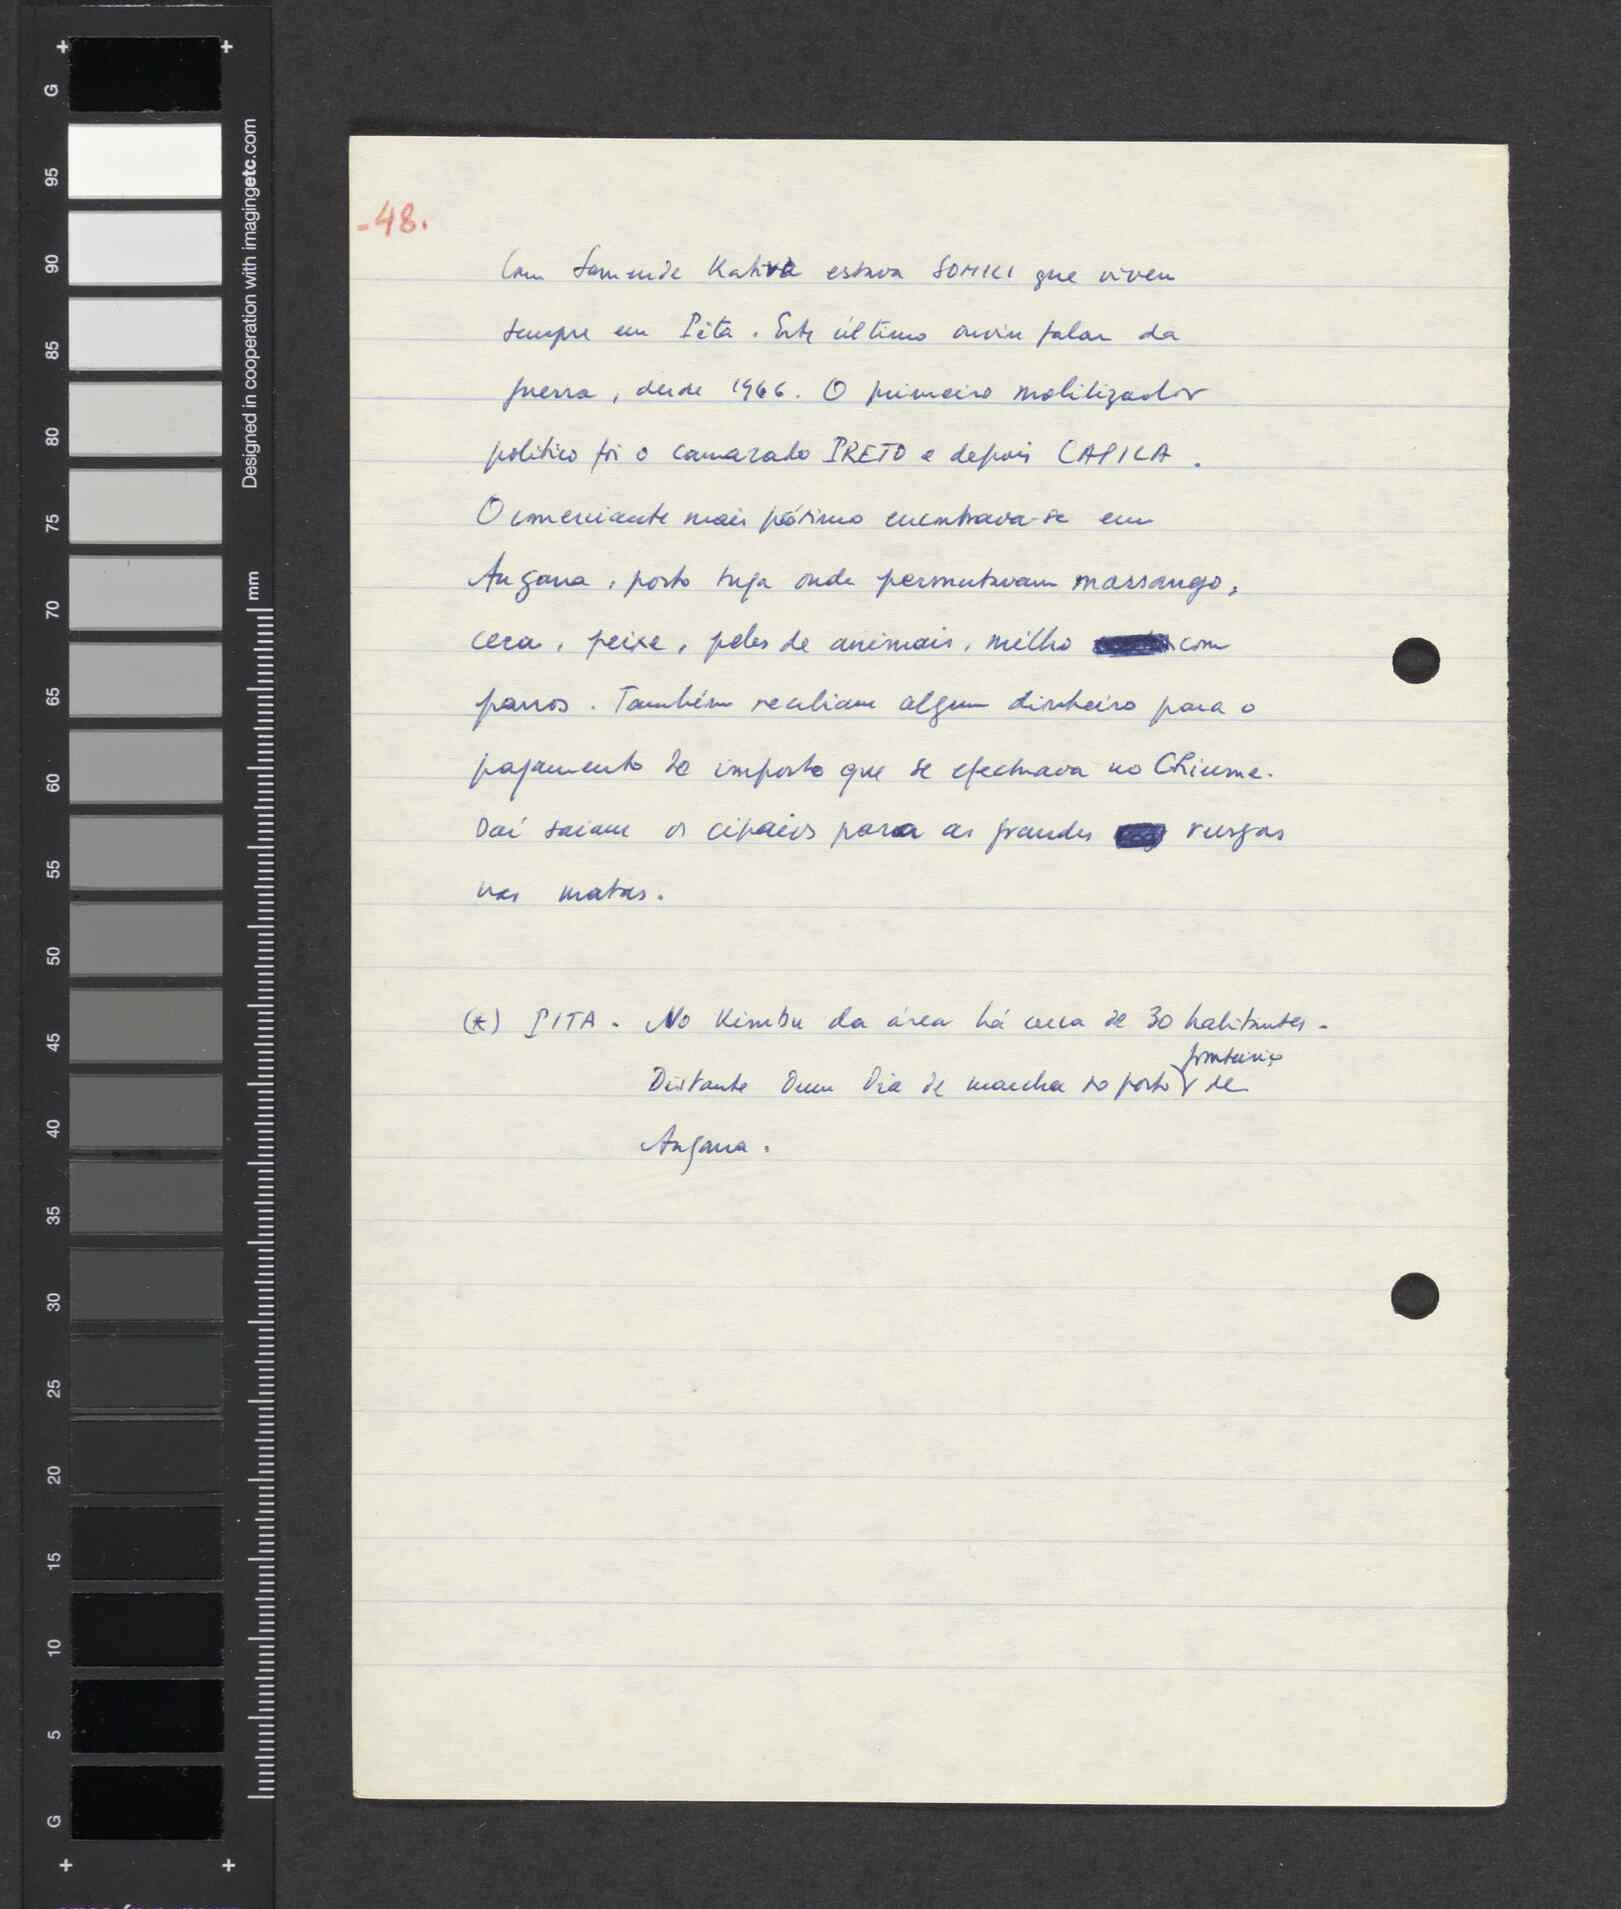 -48.
Com Samende Kativa estava SOMKI que viveu
sempre em Pita. Este último ouviu falar da
guerra, desde 1966. O primeiro mobilizador
político foi o camarada PRETO e depois CAPILA.
O comerciante mais próximo encontrava-se em
Angana, posto tuga onde permutavam massango,
cera, peixe, peles de animais, milho com
panos. Também recebiam algum dinheiro para o
pagamento do imposto que se efectuava no Chiume.
Daí saiam os cipaios para as grandes rusgas
nas matas.
(*) PITA - No Kimbu da área há cerca de 30 habitantes.
fronteiriço
Distante dum dia de marcha do posto de
Angana.
G
95
90
85
80
75
70
65
60
55
50
45
40
35
30
25
20
15
10
5
G
mm
Designed in cooperation with imagingetc.com